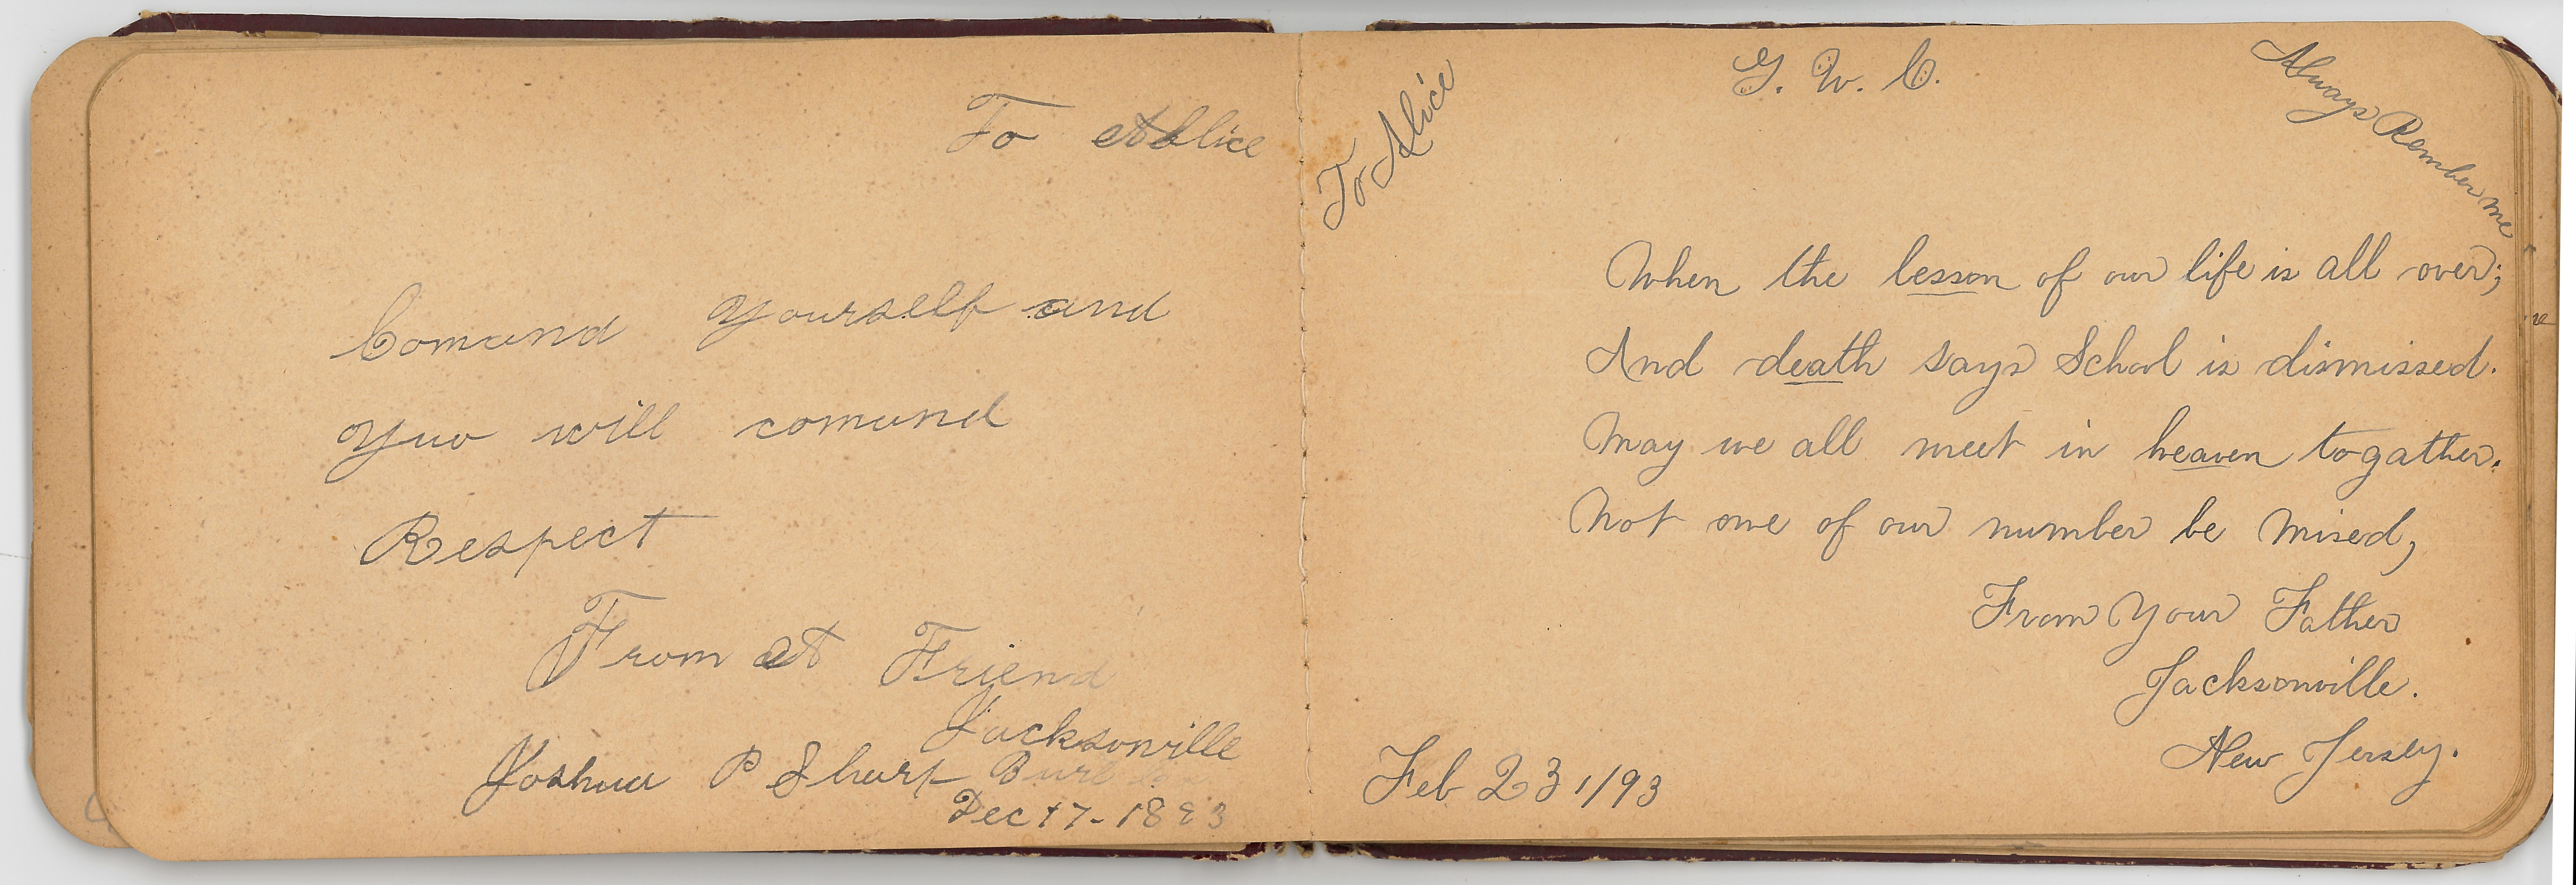 To Alice
Comand yourself and
you will comand
Respect
From A Friend
Jacksonville
Joshua P Sharp Burl
Dec 17-1893
To Alice
G. W. C.
Always Rember me
When the lesson of our life is all over;
And death says School is dismissed.
May we all meet in heaven togather.
Not one of our number be mised,
From Your Father
Jacksonville.
New Jersey.
Feb 23, /93